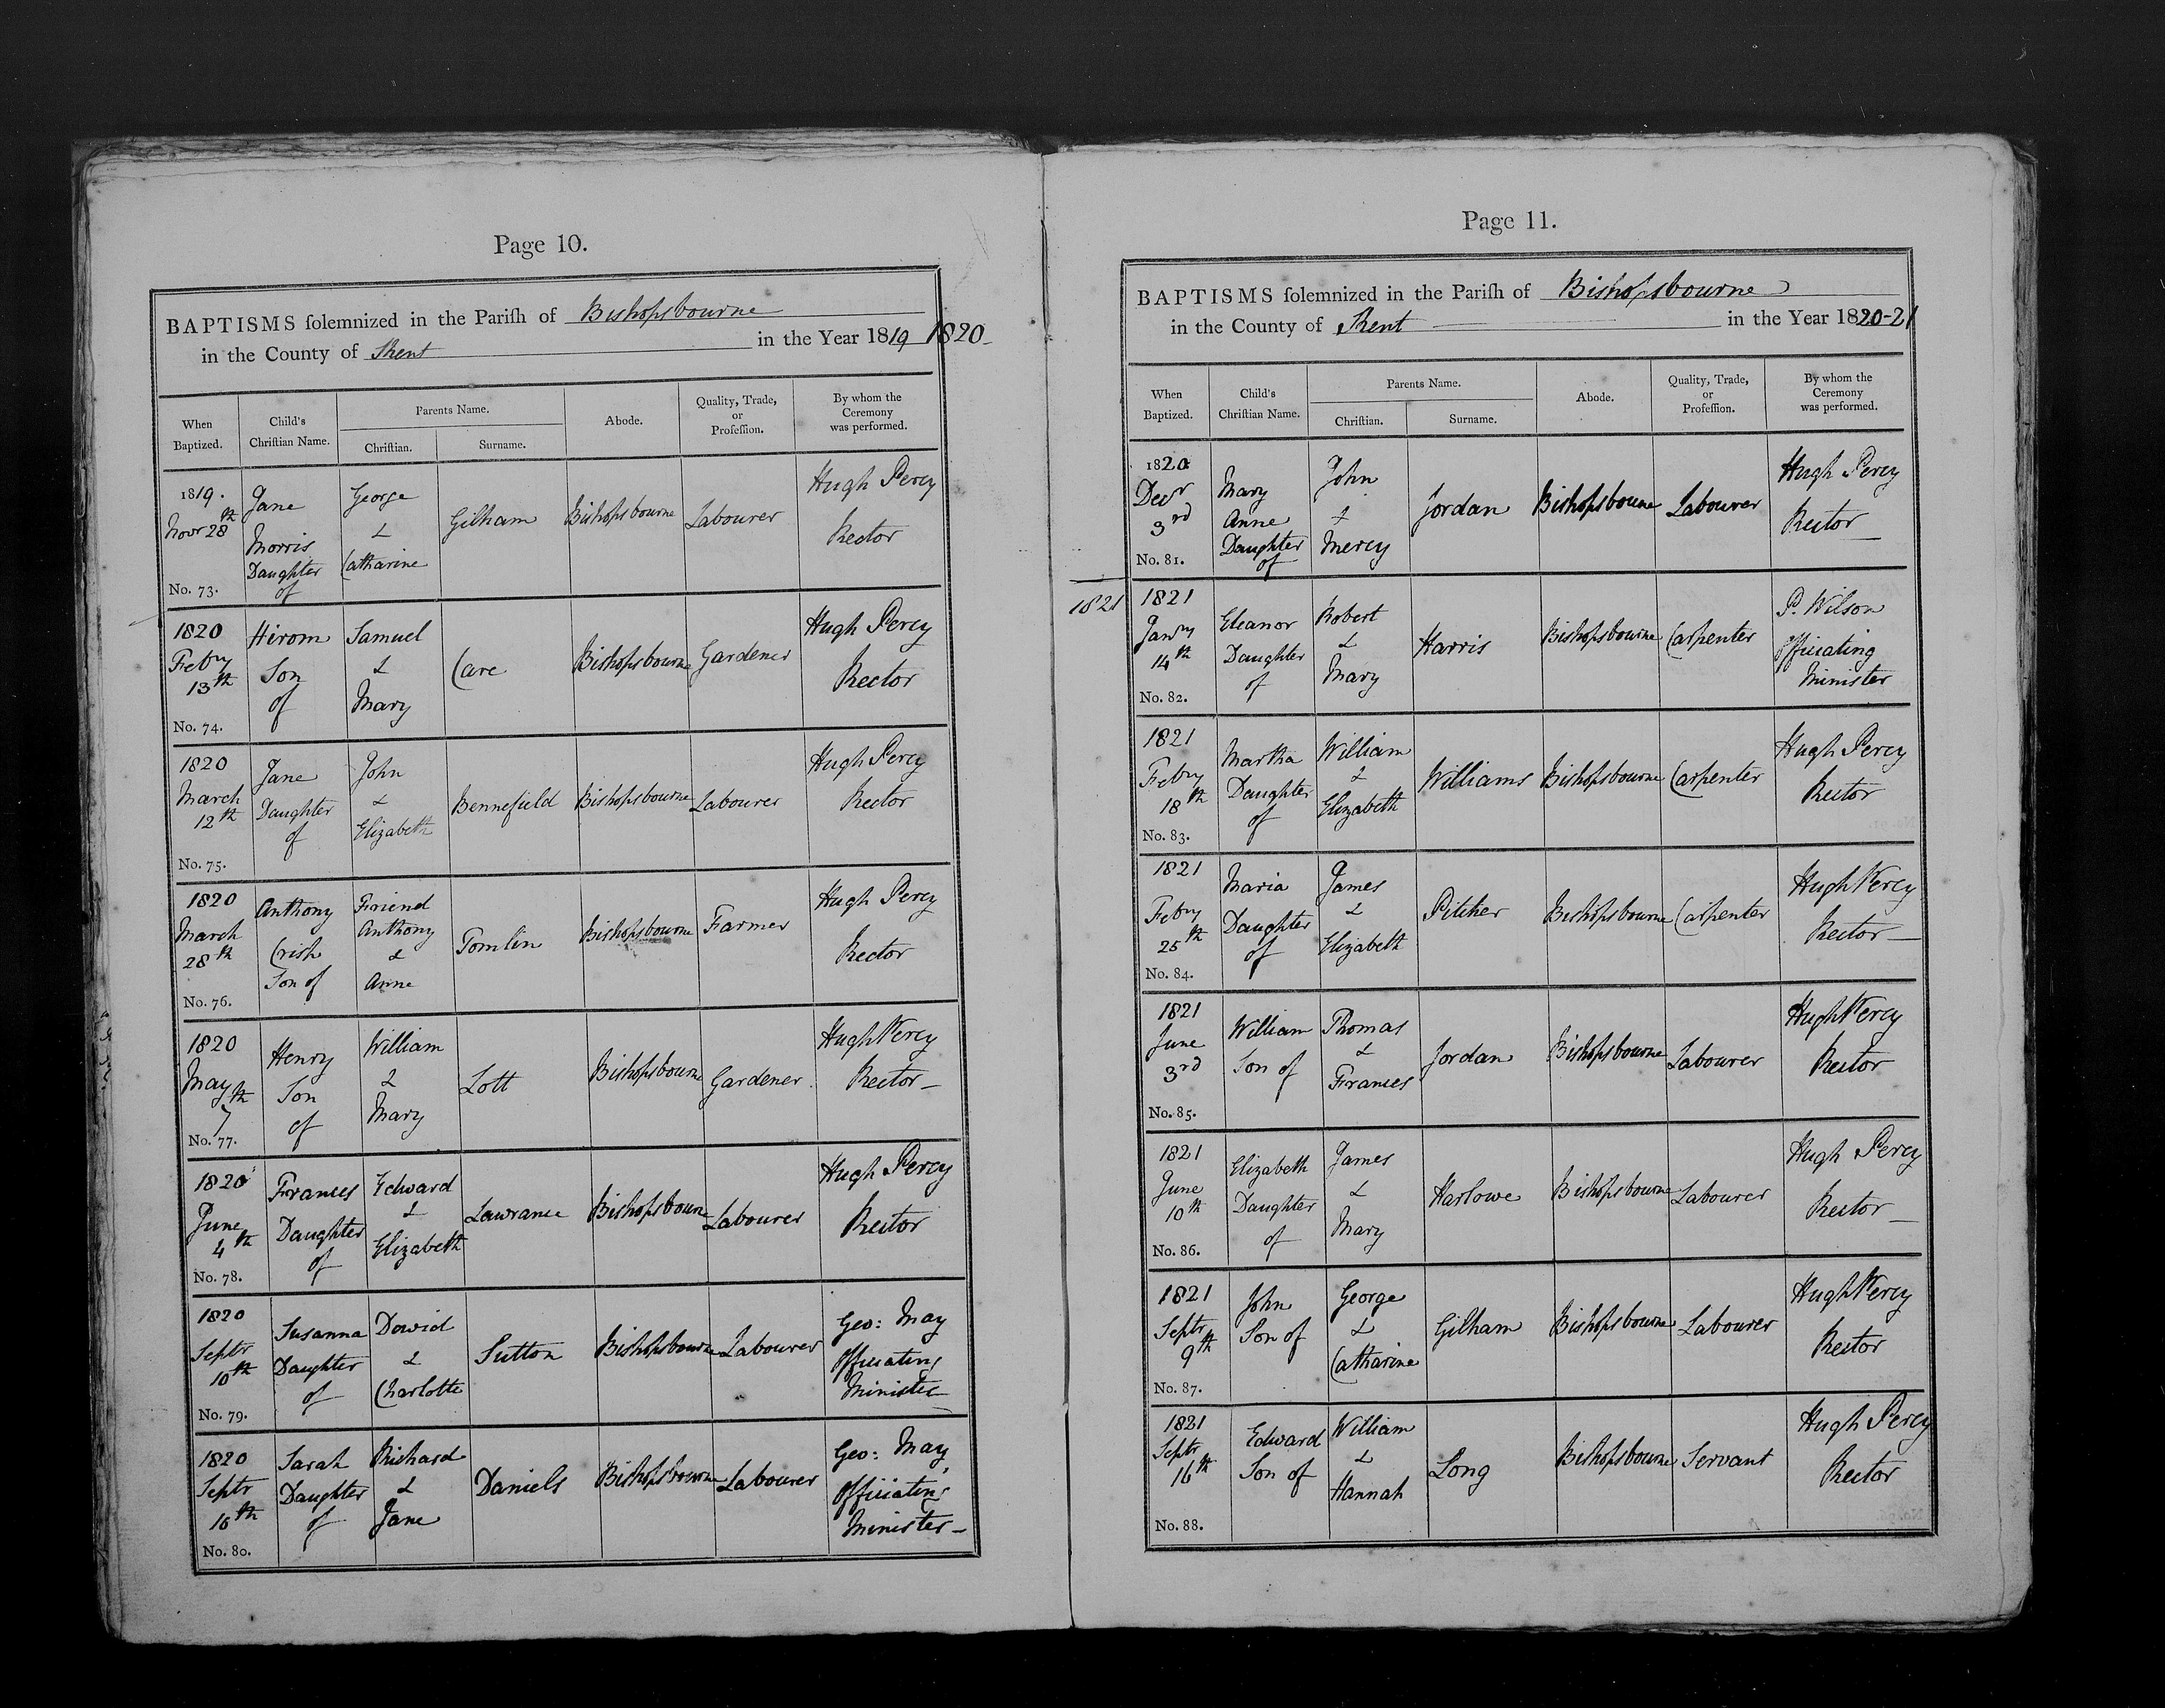 Page 10.
BAPTISMS ſolemnized in the Pariſh of Bishopsbourne
in the County of Kent in the Year 1819 1820
When Baptized.
Child's Chriſtian Name.
Parents Name.
Chriſtian.
Surname.
Abode.
Quality, Trade, or Profeſſion.
By whom the Ceremony was performed.
1819.
Novr 28th
No. 73.
Jane
Morris
Daughter
of
George
&
Catharine
Gilham
Bishopsbourne
Labourer
Hugh Percy
Rector
1820
Febry
13th
No. 74.
Hirom
Son
of
Samuel
&
Mary
Care
Bishopsbourne
Gardener
Hugh Percy
Rector
1820
March
12th
No. 75.
Jane
Daughter
of
John
&
Elizabeth
Bennefield
Bishopsbourne
Labourer
Hugh Percy
Rector
1820
March
28th
No. 76.
Anthony
Crish
Son of
Friend
Anthony
&
Anne
Tomlin
Bishopsbourne
Farmer
Hugh Percy
Rector
1820
May
7th
No. 77.
Henry
Son
of
William
&
Mary
Lott
Bishopsbourne
Gardener
Hugh Percy
Rector
1820
June
4th
No. 78.
Frances
Daughter
of
Edward
&
Elizabeth
Lawrance
Bishopsbourne
Labourer
Hugh Percy
Rector
1820
Septr
10th
No. 79.
Susanna
Daughter
of
David
&
Charlotte
Sutton
Bishopsbourne
Labourer
Geo: May
Officiating
Minister
1820
Septr
16th
No. 80.
Sarah
Daughter
of
Richard
&
Jane
Daniels
Bishopsbourne
Labourer
Geo: May
Officiating
Minister
Page 11.
BAPTISMS ſolemnized in the Pariſh of Bishopsbourne
in the County of Kent in the Year 1820-21
When Baptized.
Child's Chriſtian Name.
Parents Name.
Chriſtian.
Surname.
Abode.
Quality, Trade, or Profeſſion.
By whom the Ceremony was performed.
1820
Decr
3rd
No. 81.
Mary
Anne
Daughter
of
John
&
Mercy
Jordan
Bishopsbourne
Labourer
Hugh Percy
Rector
1821
1821
Jany
14th
No. 82.
Eleanor
Daughter
of
Robert
&
Mary
Harris
Bishopsbourne
Carpenter
P. Wilson
Officiating
Minister
1821
Febry
18th
No. 83.
Martha
Daughter
of
William
&
Elizabeth
Williams
Bishopsbourne
Carpenter
Hugh Percy
Rector
1821
Febry
25th
No. 84.
Maria
Daughter
of
James
&
Elizabeth
Pilcher
Bishopsbourne
Carpenter
Hugh Percy
Rector
1821
June
3rd
No. 85.
William
Son of
Thomas
&
Frances
Jordan
Bishopsbourne
Labourer
Hugh Percy
Rector
1821
June
10th
No. 86.
Elizabeth
Daughter
of
James
&
Mary
Harlowe
Bishopsbourne
Labourer
Hugh Percy
Rector
1821
Septr
9th
No. 87.
John
Son of
George
&
Catharine
Gilham
Bishopsbourne
Labourer
Hugh Percy
Rector
1821
Septr
16th
No. 88.
Edward
Son of
William
&
Hannah
Long
Bishopsbourne
Servant
Hugh Percy
Rector